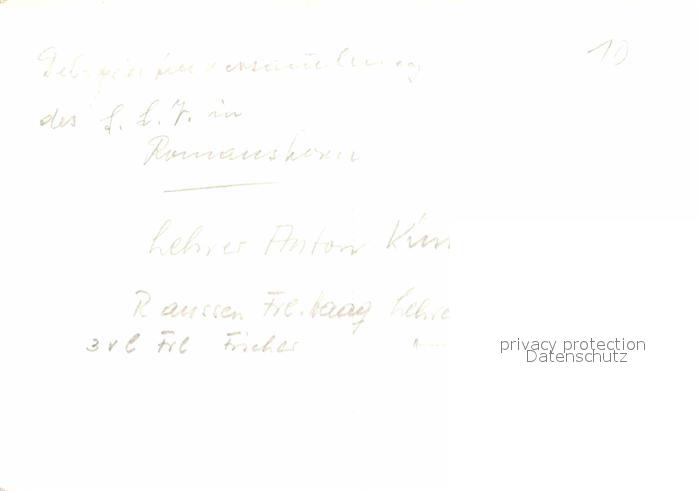 10
Delegiertenversammlung
des S. L. V. in
Romanshorn
Lehrer Anton
R aussen Frl. Haag Lehre
3 v l Frl Fischer
privacy protection
Datenschutz